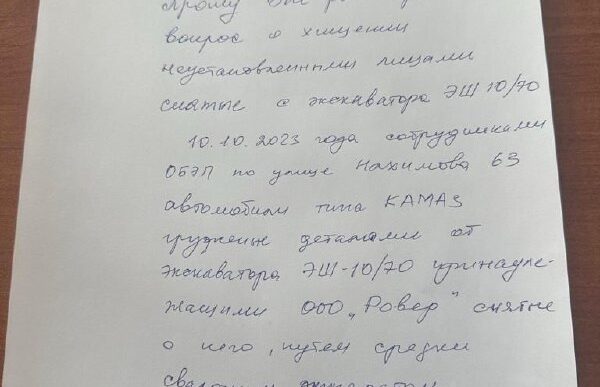 Прошу Вас
вопрос о хищении
неустановленными лицами
снятые с экскаватора ЭШ 10/70
10.10.2023 года сотрудниками
ОБЭП по улице Нахимова 63
автомобили типа КАМАЗ
груженые деталями от
экскаватора ЭШ-10/70 принадле-
жащими ООО „Ровер" снятые
с него, путем срезки